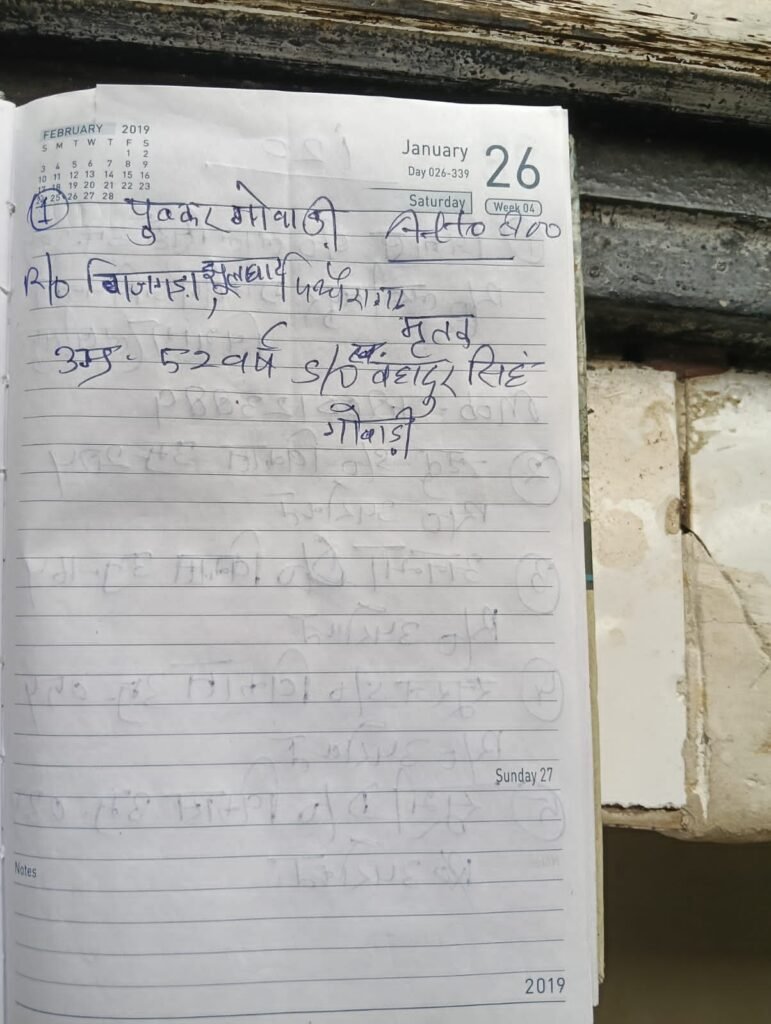 FEBRUARY 2019
S M T W T F S
1 2
3 4 5 6 7 8 9
10 11 12 13 14 15 16
17 18 19 20 21 22 23
24 25 26 27 28
January 26
Day 026-339
Saturday Week 04
① पुष्कर गोबाड़ी
R/o बिजगड़ा, झूलाघाट पिथौरागढ़
मृतक
उम्र- 52 वर्ष S/o स्व. बहादुर सिंह
गोबाड़ी
Sunday 27
Notes
2019